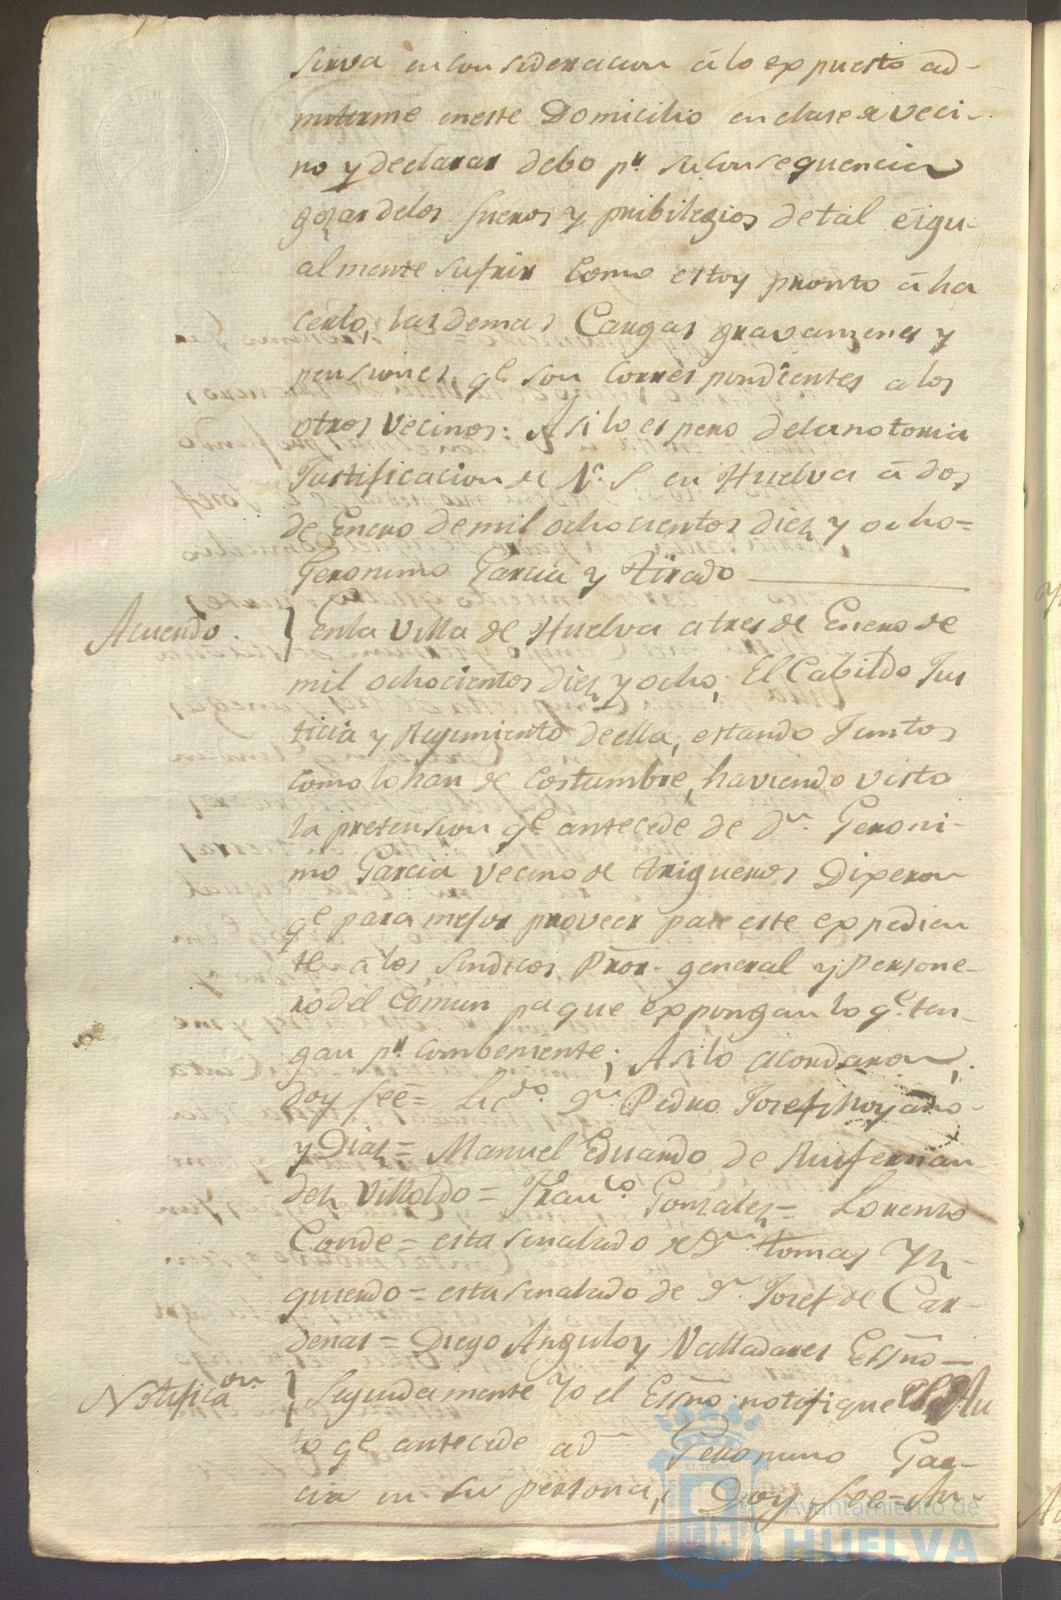 sirva en consideracion á lo expuesto ad-
mitirme en este Domicilio en clase de Veci-
no y declarar debo pr. su consequencia
gozar delos fueros y pribilegios de tal é igu-
almente sufrir como estoy pronto á ha
cerlo, las demas Cargas gravamenes y
pensiones, qe. son correspondientes a los
otros Vecinos: Asi lo espero dela notoria
Justificacion de V. S. en Huelva á dos
de Enero de mil ochocientos diez y ocho=
Geronimo Garcia y Tirado
Acuerdo. } En la Villa de Huelva a tres de Enero de
mil ochocientos diez y ocho; El Cabildo Jus
ticia y Regimiento de ella, estando Juntos
como lo han de costumbre, haviendo visto
la pretension qe. antecede de dn. Geroni-
mo Garcia vecino de Trigueros Dixeron
qe. para mejor proveer pase este expedien
te á los Sindicos Pror. general y Persone-
ro del Comun pa que expongan lo qe. ten-
gan pr. combeniente; Asi lo acordaron,
doy feé= Licdo. Dn. Pedro Josef Moyano
y Diaz= Manuel Eduardo de Ruifernan
dez Villoldo= Franco. Gonzalez= Lorenzo
Conde= esta señalado de Dn. Tomas Yz-
quierdo= esta señalado de Dn. Josef de Car-
denas= Diego Angulo y Valladares Essno=
Notificaon. } Seguidamente Yo el Essno. notifique el Au
to qe. antecede a dn. Geronimo Gar-
cia en su persona, Doy feé= An-
Ayuntamiento de
HUELVA